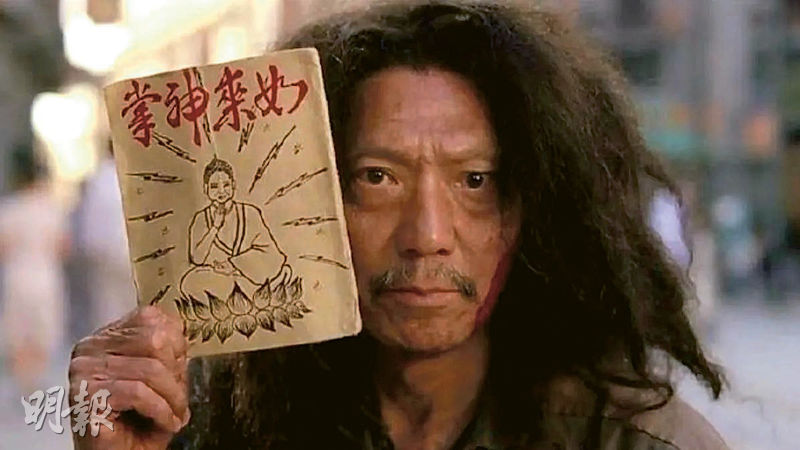 如來神掌
明報